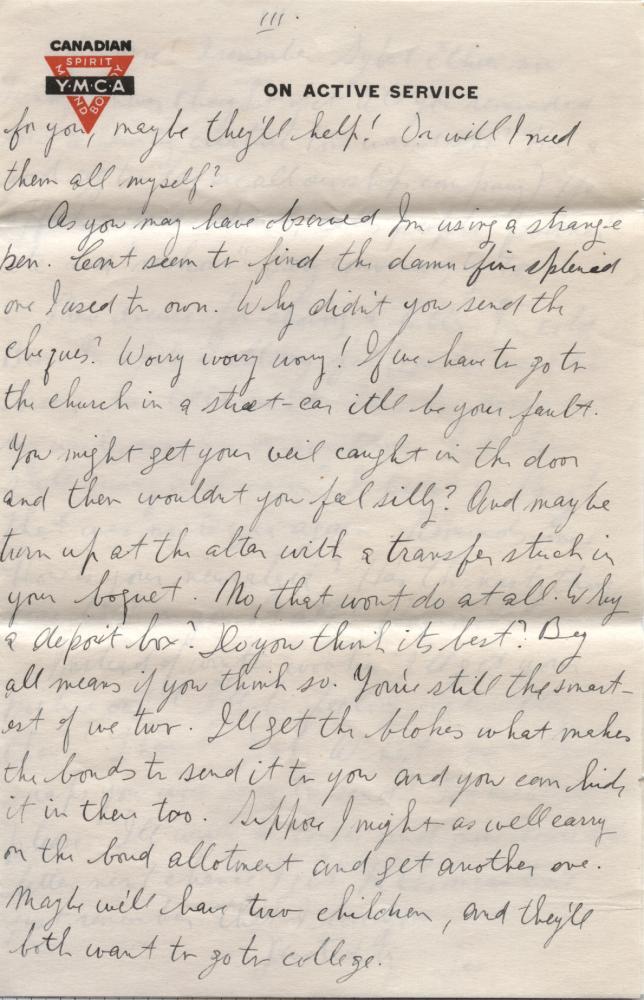 III.
CANADIAN
SPIRIT
Y·M·C·A
MIND BODY
ON ACTIVE SERVICE
for you, maybe they'll help! Or will I need
them all myself?
As you may have observed I'm using a strange
pen. Cant seem to find the damn fine splendid
one I used to own. Why didn't you send the
cheques? Worry worry worry! If we have to go to
the church in a street-car itll be your fault.
You might get your veil caught in the door
and then wouldnt you feel silly? And maybe
turn up at the altar with a transfer stuck in
your boquet. No, that wont do at all. Why
a deposit box? Do you think its best? By
all means if you think so. You're still the smart-
est of we two. I'll get the blokes what makes
the bonds to send it to you and you can hide
it in there too. Suppose I might as well carry
on the bond allotment and get another one.
Maybe we'll have two children, and they'll
both want to go to college.